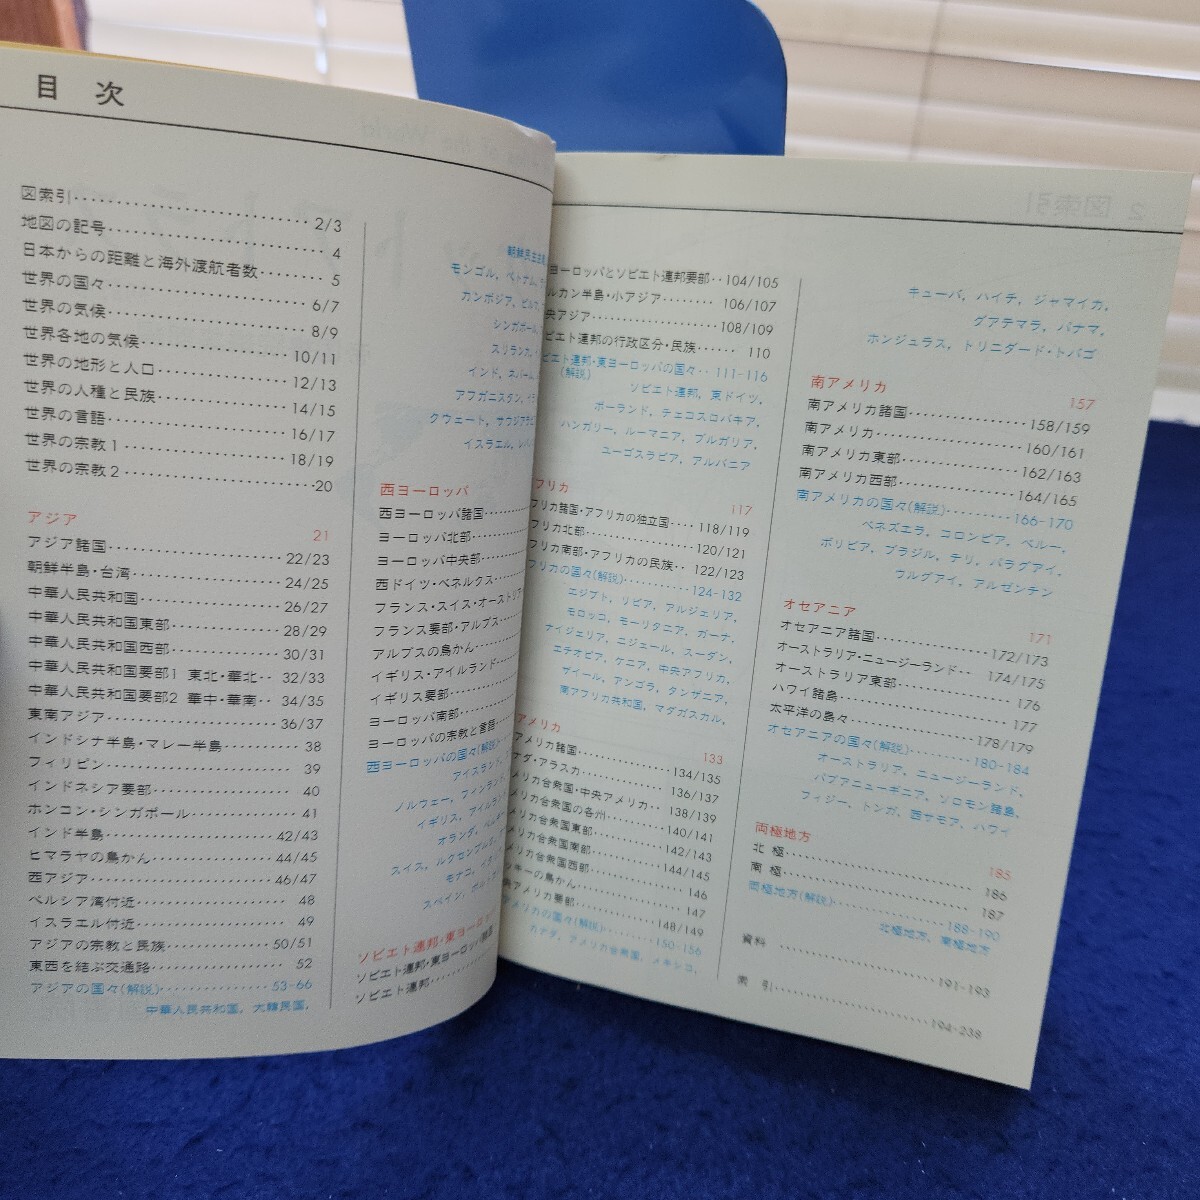 目 次
図索引 2/3
地図の記号 4
日本からの距離と海外渡航者数 5
世界の国々 6/7
世界の気候 8/9
世界各地の気候 10/11
世界の地形と人口 12/13
世界の人種と民族 14/15
世界の言語 16/17
世界の宗教1 18/19
世界の宗教2 20
アジア 21
アジア諸国 22/23
朝鮮半島・台湾 24/25
中華人民共和国 26/27
中華人民共和国東部 28/29
中華人民共和国西部 30/31
中華人民共和国要部1 東北・華北 32/33
中華人民共和国要部2 華中・華南 34/35
東南アジア 36/37
インドシナ半島・マレー半島 38
フィリピン 39
インドネシア要部 40
ホンコン・シンガポール 41
インド半島 42/43
ヒマラヤの鳥かん 44/45
西アジア 46/47
ペルシア湾付近 48
イスラエル付近 49
アジアの宗教と民族 50/51
東西を結ぶ交通路 52
アジアの国々(解説) 53-66
中華人民共和国, 大韓民国,
朝鮮民主主義
モンゴル, ベトナム,
カンボジア, ビルマ,
シンガポール
スリランカ,
インド, ネパール,
アフガニスタン, イラ
クウェート, サウジアラビ
イスラエル, レバ
西ヨーロッパ
西ヨーロッパ諸国
ヨーロッパ北部
ヨーロッパ中央部
西ドイツ・ベネルクス
フランス・スイス・オーストリア
フランス要部・アルプス
アルプスの鳥かん
イギリス・アイルランド
イギリス要部
ヨーロッパ南部
ヨーロッパの宗教と言語
西ヨーロッパの国々(解説)
アイスランド,
ノルウェー, フィンランド,
イギリス, アイルランド
オランダ, ベルギー
スイス, ルクセンブルク,
モナコ, イタリ
スペイン, ポル
ソビエト連邦・東ヨーロッパ
ソビエト連邦・東ヨーロッパ諸国
ソビエト連邦
ヨーロッパとソビエト連邦要部 104/105
ルカン半島・小アジア 106/107
央アジア 108/109
ビエト連邦の行政区分・民族 110
ビエト連邦・東ヨーロッパの国々 111-116
(解説)
ソビエト連邦, 東ドイツ,
ポーランド, チェコスロバキア,
ハンガリー, ルーマニア, ブルガリア,
ユーゴスラビア, アルバニア
フリカ 117
フリカ諸国・アフリカの独立国 118/119
フリカ北部 120/121
フリカ南部・アフリカの民族 122/123
フリカの国々(解説) 124-132
エジプト, リビア, アルジェリア,
モロッコ, モーリタニア, ガーナ,
ナイジェリア, ニジェール, スーダン,
エチオピア, ケニア, 中央アフリカ,
ザイール, アンゴラ, タンザニア,
南アフリカ共和国, マダガスカル,
アメリカ 133
アメリカ諸国 134/135
ナダ・アラスカ 136/137
メリカ合衆国・中央アメリカ 138/139
メリカ合衆国の各州 140/141
メリカ合衆国東部 142/143
メリカ合衆国南部 144/145
メリカ合衆国西部 146
ッキーの鳥かん 147
央アメリカ要部 148/149
アメリカの国々(解説) 150-156
カナダ, アメリカ合衆国, メキシコ,
キューバ, ハイチ, ジャマイカ,
グアテマラ, パナマ,
ホンジュラス, トリニダード・トバゴ
南アメリカ 157
南アメリカ諸国 158/159
南アメリカ 160/161
南アメリカ東部 162/163
南アメリカ西部 164/165
南アメリカの国々(解説) 166-170
ベネズエラ, コロンビア, ペルー,
ボリビア, ブラジル, チリ, パラグアイ,
ウルグアイ, アルゼンチン
オセアニア 171
オセアニア諸国 172/173
オーストラリア・ニュージーランド 174/175
オーストラリア東部 176
ハワイ諸島 177
太平洋の島々 178/179
オセアニアの国々(解説) 180-184
オーストラリア, ニュージーランド,
パプアニューギニア, ソロモン諸島,
フィジー, トンガ, 西サモア, ハワイ
両極地方 185
北 極 186
南 極 187
両極地方(解説) 188-190
北極地方, 南極地方
資料 191-193
索 引 194-238